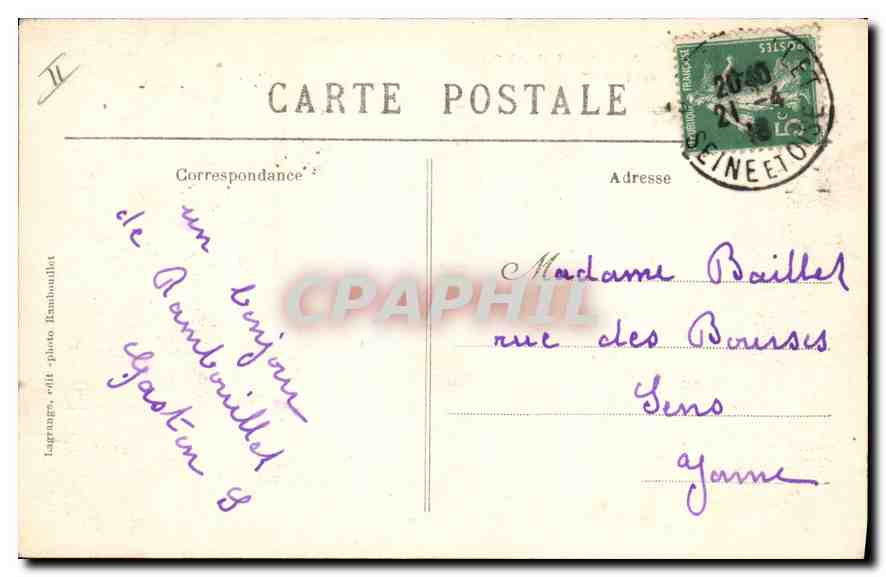 II
CARTE POSTALE
POSTES
FRANÇAISE
5c
20*40
21 -4
SEINE ET OISE
Correspondance
un bonjour
de Rambouillet
Gaston S
Adresse
Madame Baillet
rue des Bourses
Sens
Yonne
Lagrange, édit -photo Rambouillet
CPAPHIL